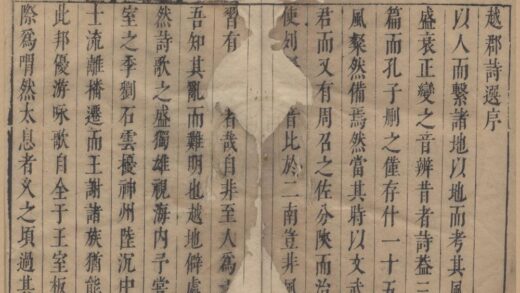 越郡詩選序
以人而繫諸地以地而考其風
盛衰正變之音辨昔者詩葢三
篇而孔子刪之僅存什一十五
風粲然備焉然當其時以文武
君而又有周召之佐分陝而治
使列比於二南豈非風
習有者哉自非至人為
吾知其亂而難明也越地僻處
然詩歌之盛獨雄視海內予嘗
室之季劉石雲擾神州陸沉中
士流離播遷而王謝諸族猶能
此邦優游咏歌自全于王室板
際為喟然太息者久之頃過其